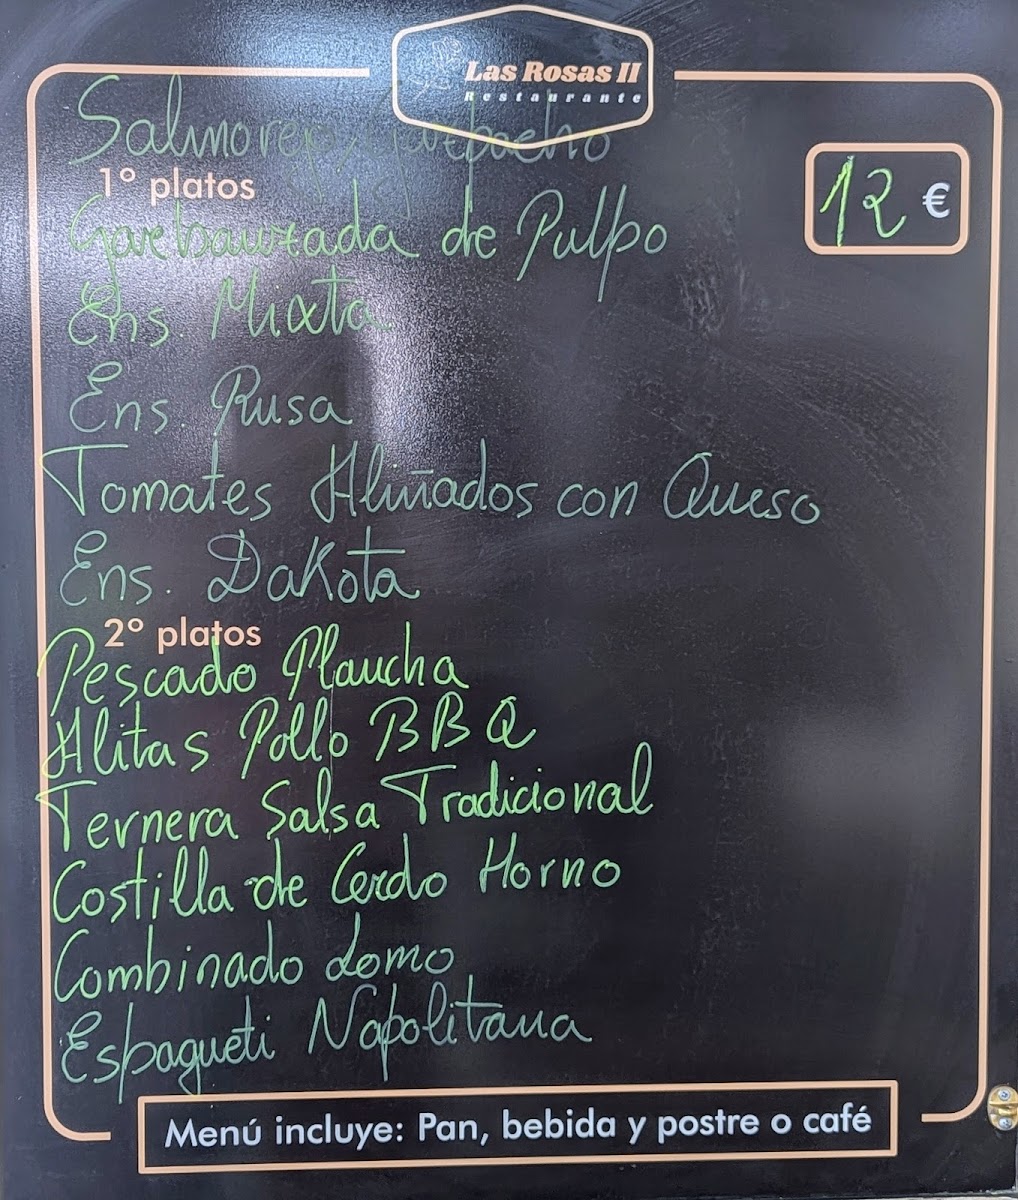 Las Rosas II
Restaurante
Salmorejo/Gazpacho
1º platos
12 €
Garbanzada de Pulpo
Ens. Mixta
Ens. Rusa
Tomates Aliñados con Queso
Ens. Dakota
2º platos
Pescado Plancha
Alitas Pollo BBQ
Ternera Salsa Tradicional
Costilla de Cerdo Horno
Combinado Lomo
Espagueti Napolitana
Menú incluye: Pan, bebida y postre o café